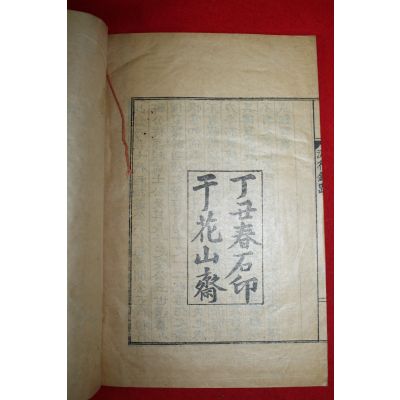 丁丑春石印
于花山齋